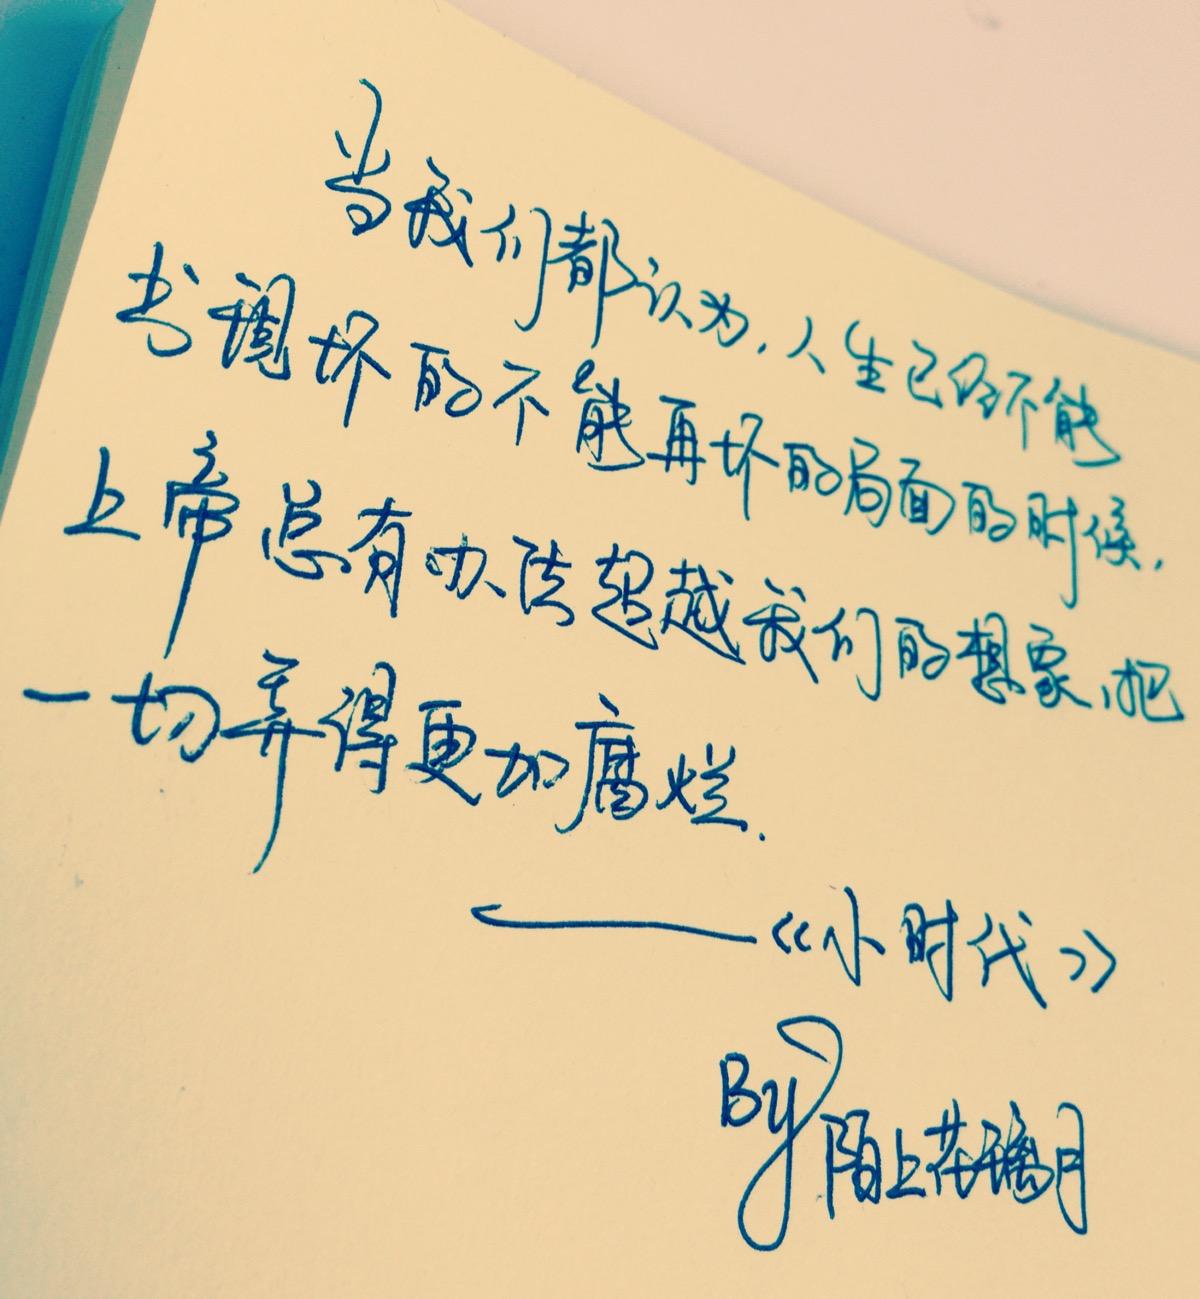 当我们都认为,人生已经不能
出现坏的不能再坏的局面的时候,
上帝总有办法超越我们的想象,把
一切弄得更加腐烂.
——《小时代》
By
陌上花璃月